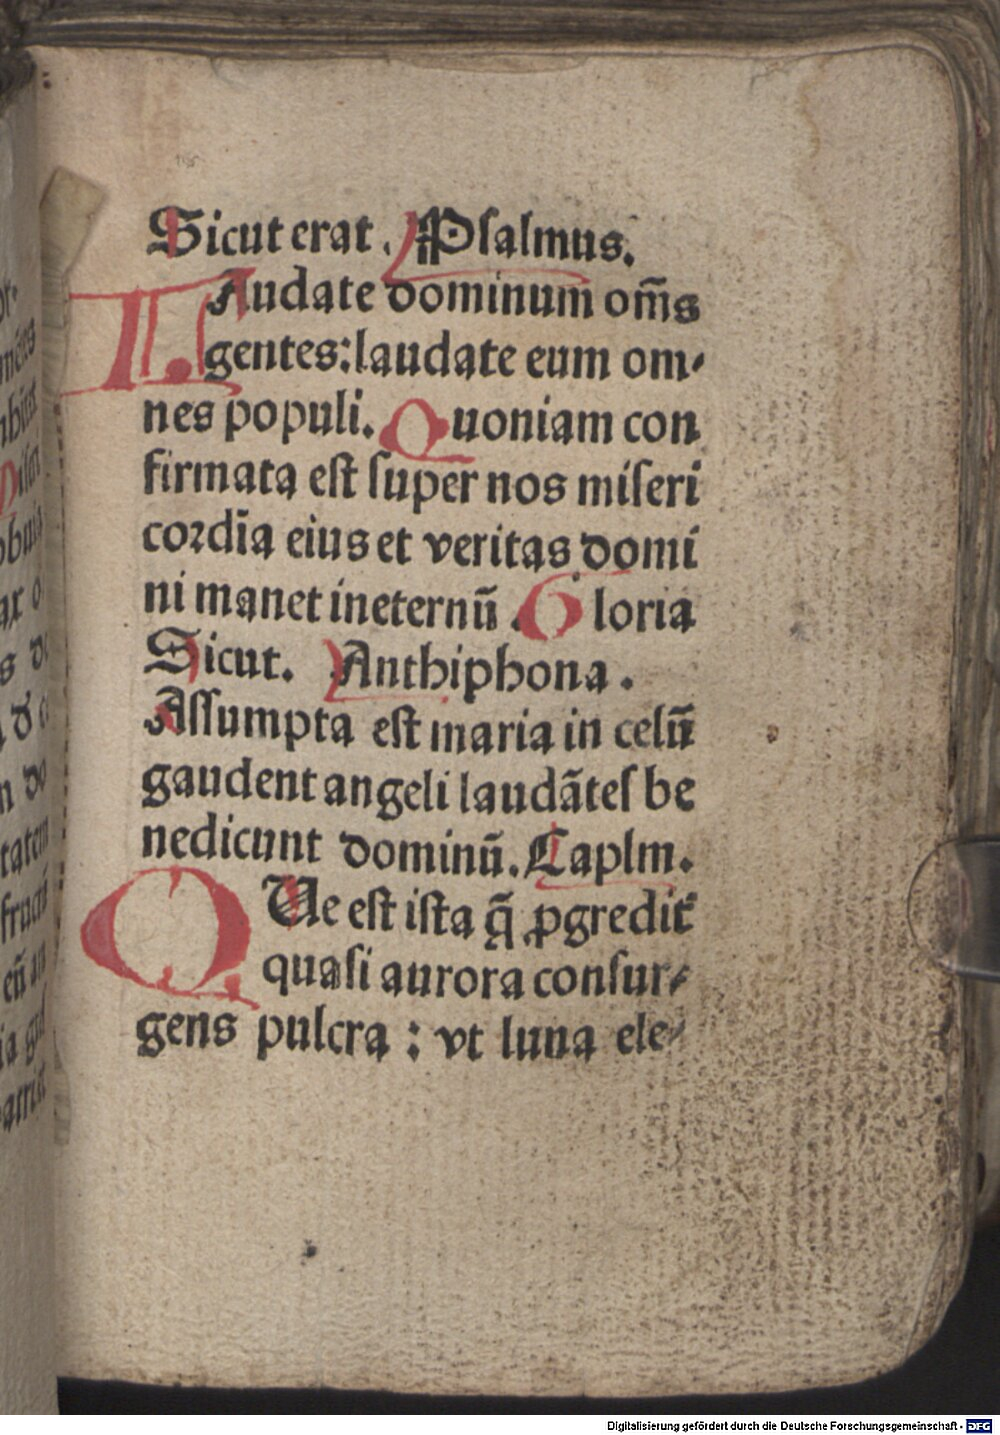 Sicut erat. Psalmus.
LAudate dominum om̄s
gentes: laudate eum om-
nes populi. Quoniam con
firmata eſt ſuper nos miſeri
cordīa eius et veritas domi
ni manet ineternū. Gloria
Sicut. Anthiphona.
Aſſumpta eſt maria in celū
gaudent angeli laudāteſ be
nedicunt dominū. Caplm.
QUe eſt iſta q̄ ꝓgredit᷑
quaſi aurora conſur-
gens pulcra : vt luna ele-
Digitalisierung gefördert durch die Deutsche Forschungsgemeinschaft - DFG